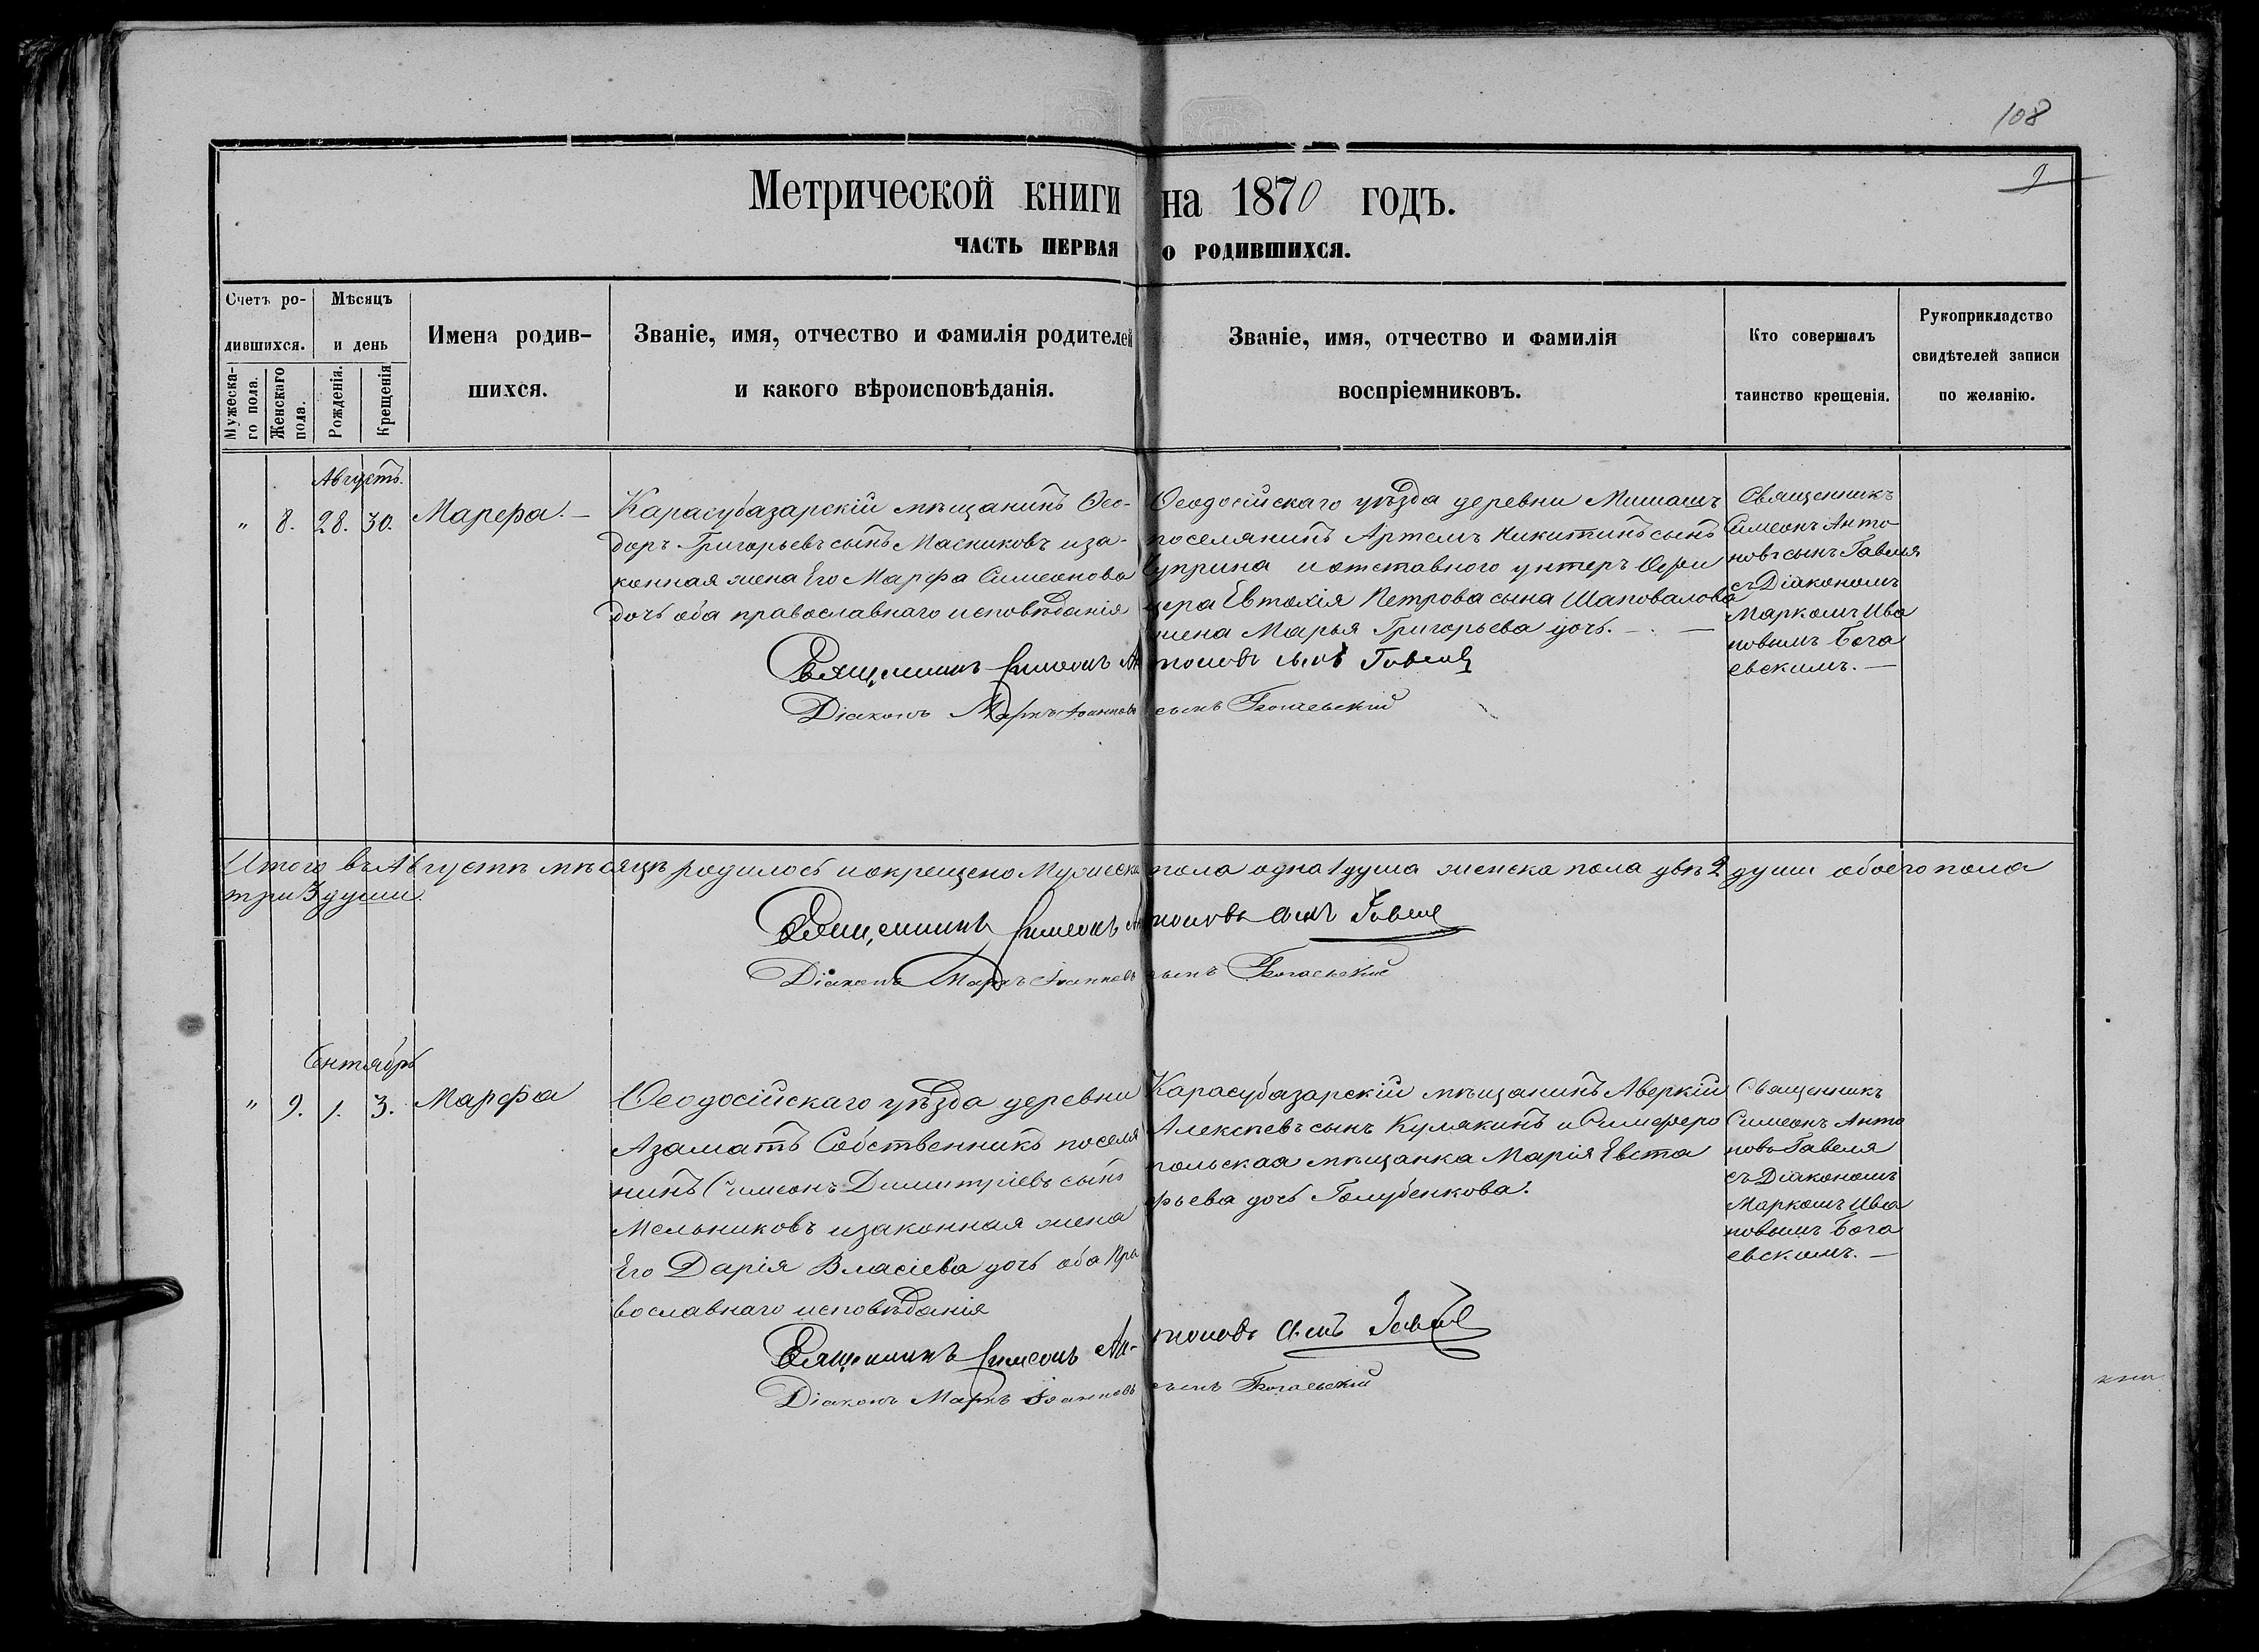 108
9
Метрической книги на 1870 годъ.
ЧАСТЬ ПЕРВАЯ О РОДИВШИХСЯ.
Счетъ ро-
дившихся.
Мужеска-
го пола.
Женскаго
пола.
Мѣсяцъ
и день
Рожденія.
Крещенія
Имена родив-
шихся.
Званіе, имя, отчество и фамилія родителей
и какого вѣроисповѣданія.
Званіе, имя, отчество и фамилія
воспріемниковъ.
Кто совершалъ
таинство крещенія.
Рукоприкладство
свидѣтелей записи
по желанію.
Августъ.
" 8. 28. 30. Марфа. —
Карасубазарскій мѣщанинъ Ѳео-
доръ Григорьевъ сынъ Масниковъ иза-
конная жена Его Марфа Симеонова
дочь оба православнаго исповѣданія
Ѳеодосійскаго уѣзда деревни
поселянинъ Артемъ Никитинъ сынъ
Чуприна и отставного унтеръ Офи
цера Евтохія Петрова сына Шаповалова
жена Марья Григорьева дочь. —
Священникъ
Симеонъ Анто
новъ сынъ Гавеля
съ Діакономъ
Маркомъ Ива
новымъ Бога
евскимъ. —
Священникъ Симеонъ Антоновъ сынъ
Діаконъ Маркъ Іоанновъ сынъ Богаевскій
Итого въ Августѣ мѣсяцѣ родилось и окрещено Мужеска пола одна 1 душа женска пола двѣ 2 души обоего пола
три 3 души.
Священникъ Симеонъ Антоновъ сынъ
Діаконъ Маркъ Іоанновъ сынъ Богаевскій
Сентябрь
" 9. 1. 3. Марфа
Ѳеодосійскаго уѣзда деревни
Азаматъ Собственникъ поселя
нинъ Симеонъ Димитріевъ сынъ
Мельниковъ изаконная жена
Его Дарія Власіева дочь оба Пра
вославнаго исповѣданія
Карасубазарскій мѣщанинъ Аверкій
Алексѣевъ сынъ Кулякинъ и Симферо
польская мѣщанка Марія Евста
фьева дочь Голубенкова.
Священникъ
Симеонъ Анто
новъ Гавеля
съ Діакономъ
Маркомъ Ива
новымъ Бога
евскимъ. —
Священникъ Симеонъ Ан-тоновъ сынъ
Діаконъ Маркъ Іоанновъ сынъ Богаевскій